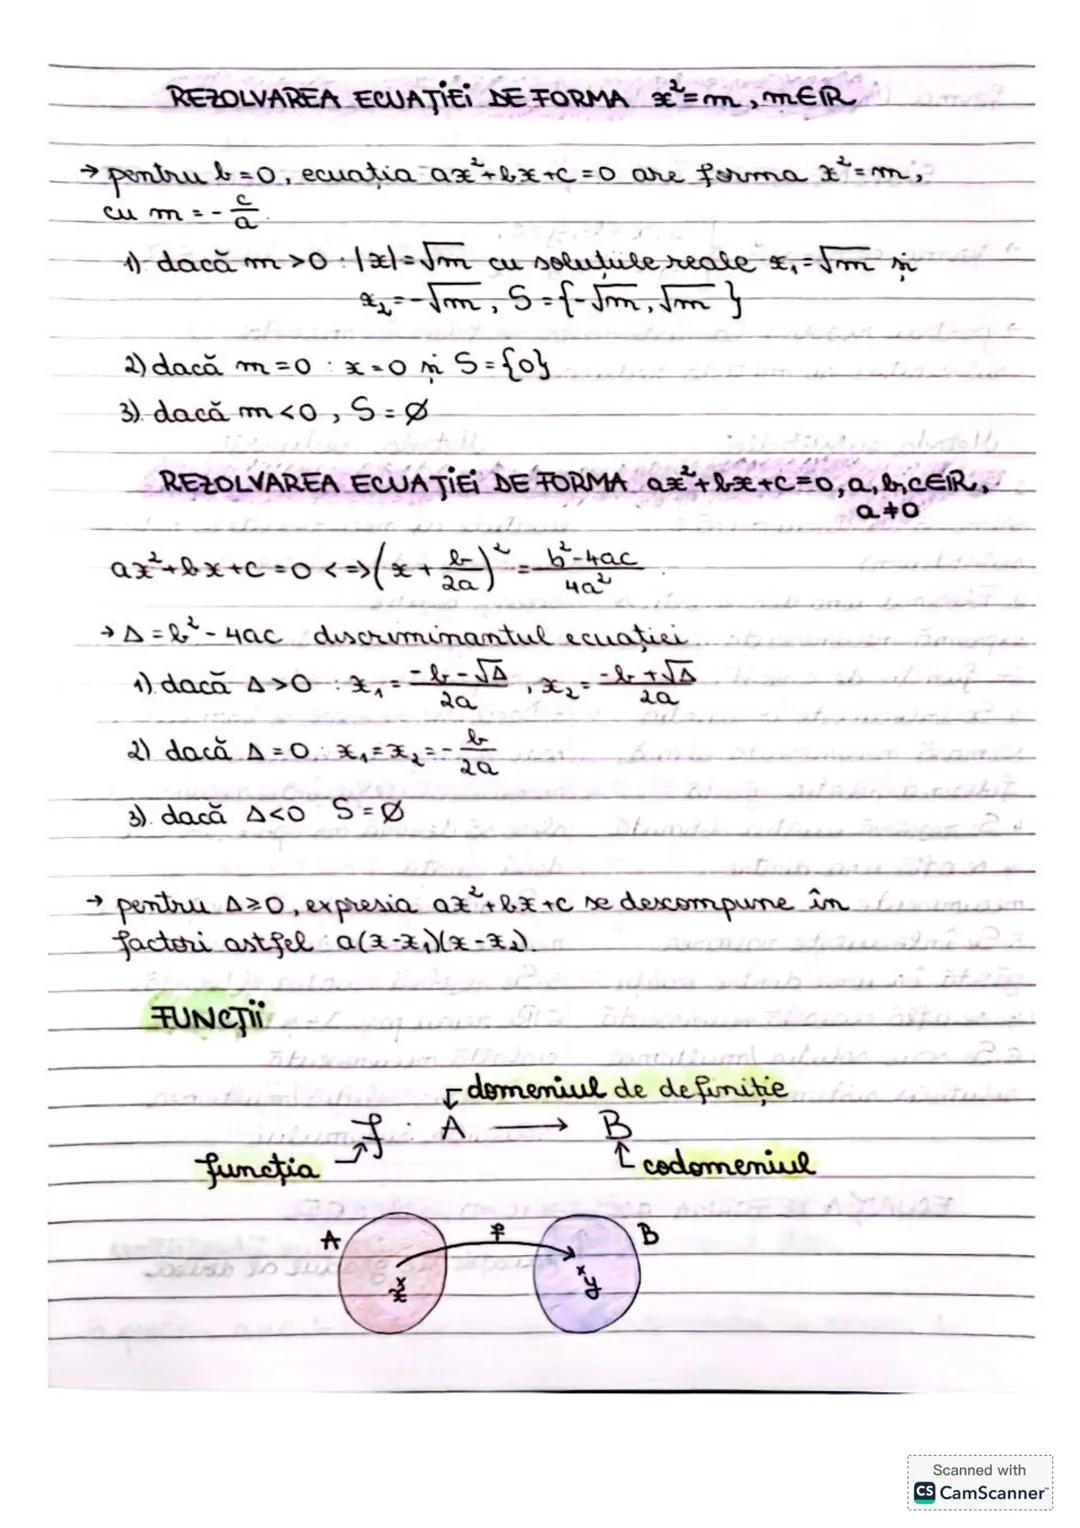 REZOLVAREA ECUAȚIEI DE FORMA x²=m, m∈ℝ
→ pentru b=0, ecuația ax²+bx+c=0 are forma x²=m,
cu m = -c/a.
1) dacă m>0 : |x|=√m cu soluțiile reale x₁=√m și
x₂=-√m, S={-√m, √m}
2) dacă m=0 : x=0 și S={0}
3) dacă m<0, S=∅
REZOLVAREA ECUAȚIEI DE FORMA ax²+bx+c=0, a,b,c∈ℝ,
a≠0
ax²+bx+c=0 <=> (x + b/2a)² = b²-4ac/4a²
→ Δ=b²-4ac discriminantul ecuației
1) dacă Δ>0 : x₁= -b-√Δ/2a, x₂= -b+√Δ/2a
2) dacă Δ=0 : x₁=x₂=-b/2a
3) dacă Δ<0 S=∅
→ pentru Δ≥0, expresia ax²+bx+c se descompune în
factori astfel: a(x-x₁)(x-x₂).
FUNCȚII
domeniul de definiție
f : A → B
funcția codomeniul
A f B
x y
Scanned with
CS CamScanner